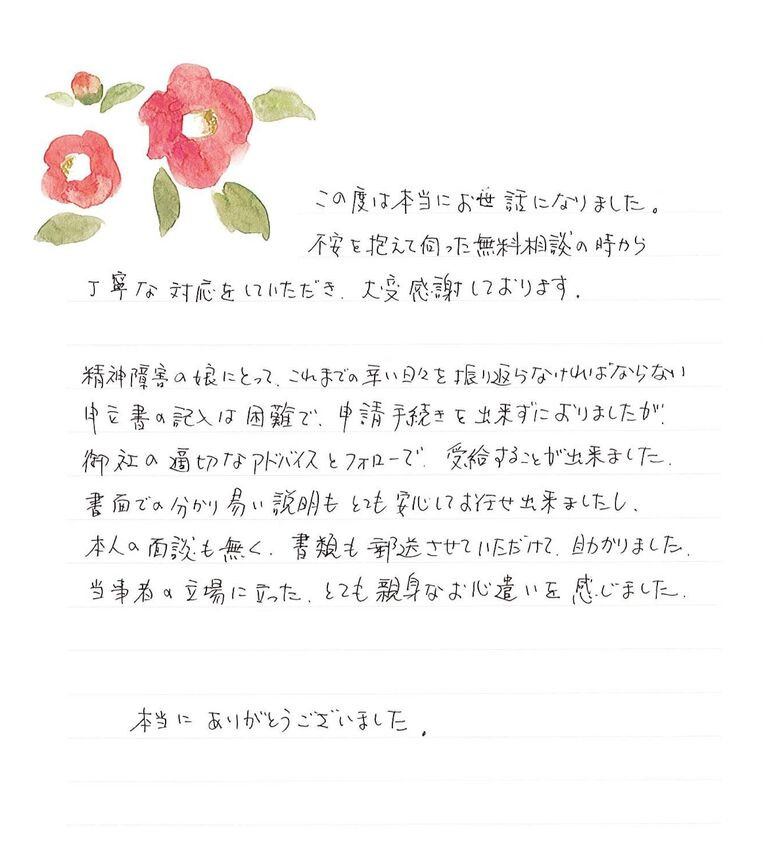 この度は本当にお世話になりました。
不安を抱えて伺った無料相談の時から
丁寧な対応をしていただき、大変感謝しております。
精神障害の娘にとって、これまでの辛い日々を振り返らなければならない
申立書の記入は困難で、申請手続きを出来ずにおりましたが、
御社の適切なアドバイスとフォローで、受給することが出来ました。
書面での分かり易い説明もとても安心してお任せ出来ましたし、
本人の面談も無く、書類も郵送させていただけて、助かりました。
当事者の立場に立った、とても親身なお心遣いを感じました。
本当にありがとうございました。